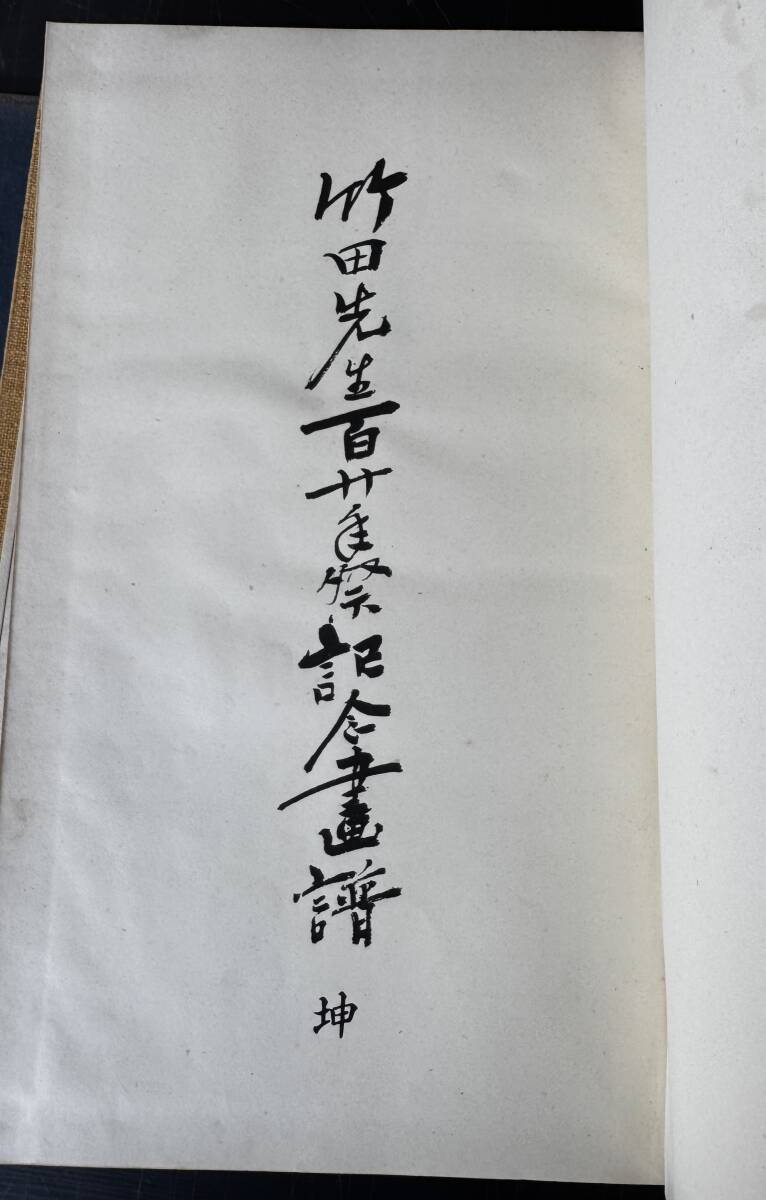 竹田先生百廿年祭記念畫譜 坤